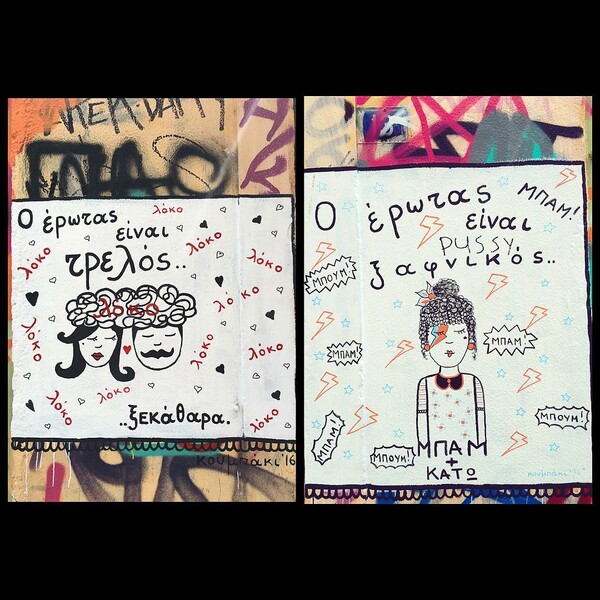 Ο έρωτας
είναι
τρελός..
λόκο
λόκο
λόκο
λόκο
λόκο
λόκο
λόκο
λόκο
λόκο
λόκο
λόκο
λόκο
..ξεκάθαρα.
κουμπάκι '16
Ο έρωτας
είναι
PUSSY
ξαφνικός..
ΜΠΑΜ!
ΜΠΟΥΜ!
ΜΠΑΜ!
ΜΠΑΜ!
ΜΠΑΜ!
ΜΠΟΥΜ!
ΜΠΟΥΜ!
ΜΠΑΜ
+
ΚΑΤΩ
κουμπάκι '16